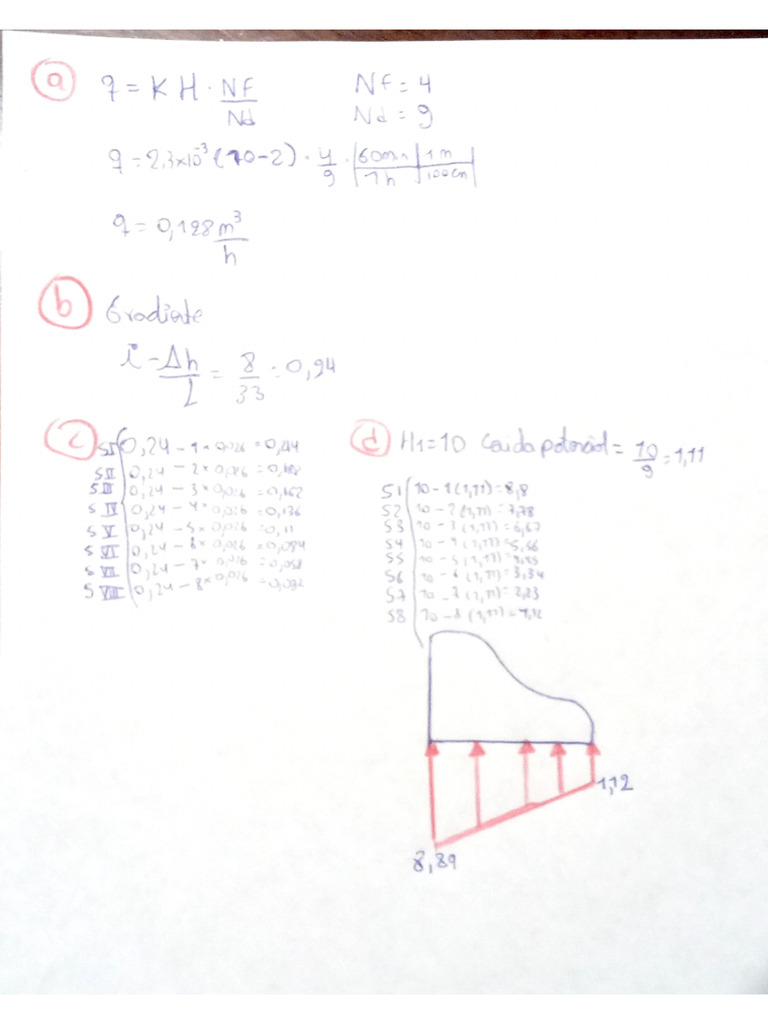 a q = K H · Nf/Nd Nf = 4
Nd = 9
q = 2,3x10^-3 (10-2) · 4/9 · |60min/1h|1m/100cm|
q = 0,128 m³/h
b Gradiente
i - Δh/L = 8/33 = 0,94
c
SI 0,24 - 1 x 0,026 = 0,214
SII 0,24 - 2 x 0,026 = 0,188
SIII 0,24 - 3 x 0,026 = 0,162
SIV 0,24 - 4 x 0,026 = 0,136
SV 0,24 - 5 x 0,026 = 0,11
SVI 0,24 - 6 x 0,026 = 0,084
SVII 0,24 - 7 x 0,026 = 0,058
SVIII 0,24 - 8 x 0,026 = 0,032
d H1 = 10 Caida potencial = 10/9 = 1,11
S1 10 - 1 (1,11) = 8,8
S2 10 - 2 (1,11) = 7,78
S3 10 - 3 (1,11) = 6,67
S4 10 - 4 (1,11) = 5,56
S5 10 - 5 (1,11) =
S6 10 - 6 (1,11) = 3,34
S7 10 - 7 (1,11) = 2,23
S8 10 - 8 (1,11) = 1,12
1,12
8,89